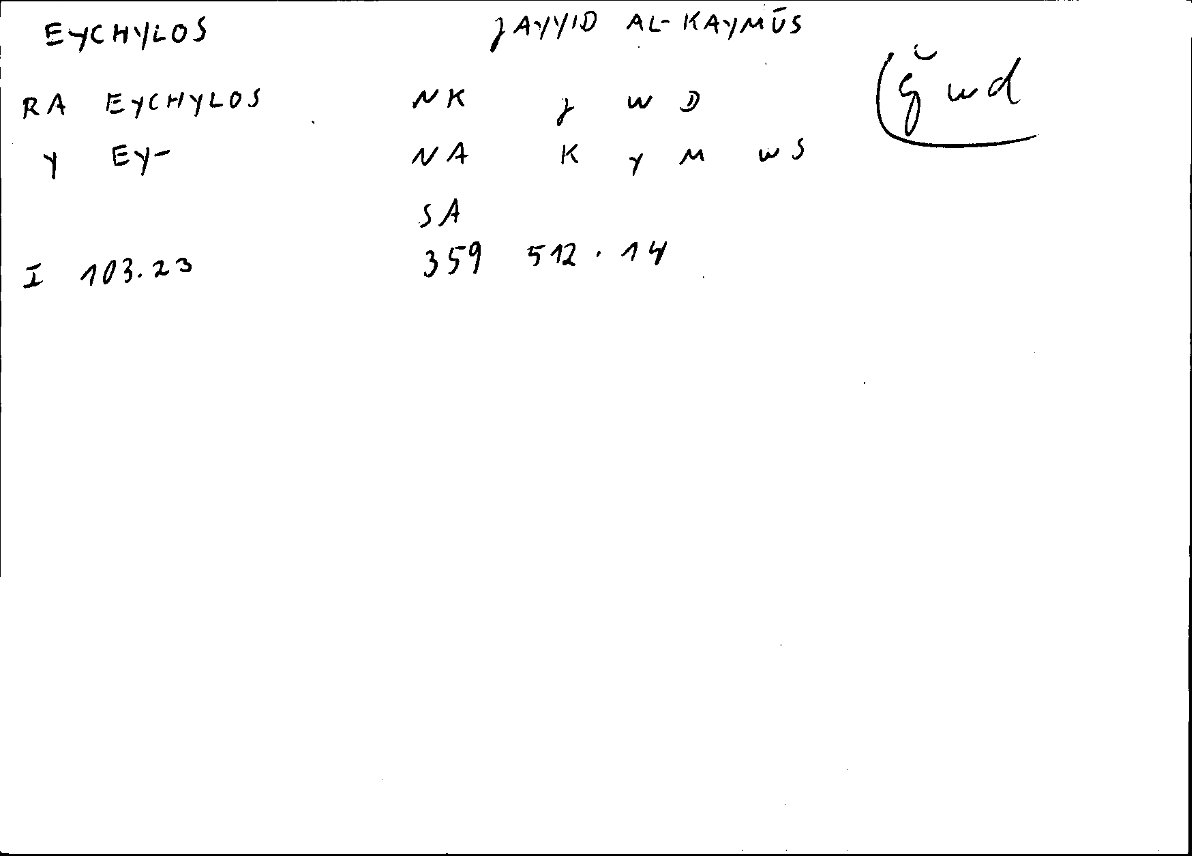 EYCHYLOS JAYYID AL-KAYMŪS
RA EYCHYLOS NK J W D
Y EY- NA K Y M W S
SA
I 103.23 359 512.14
ǧwd